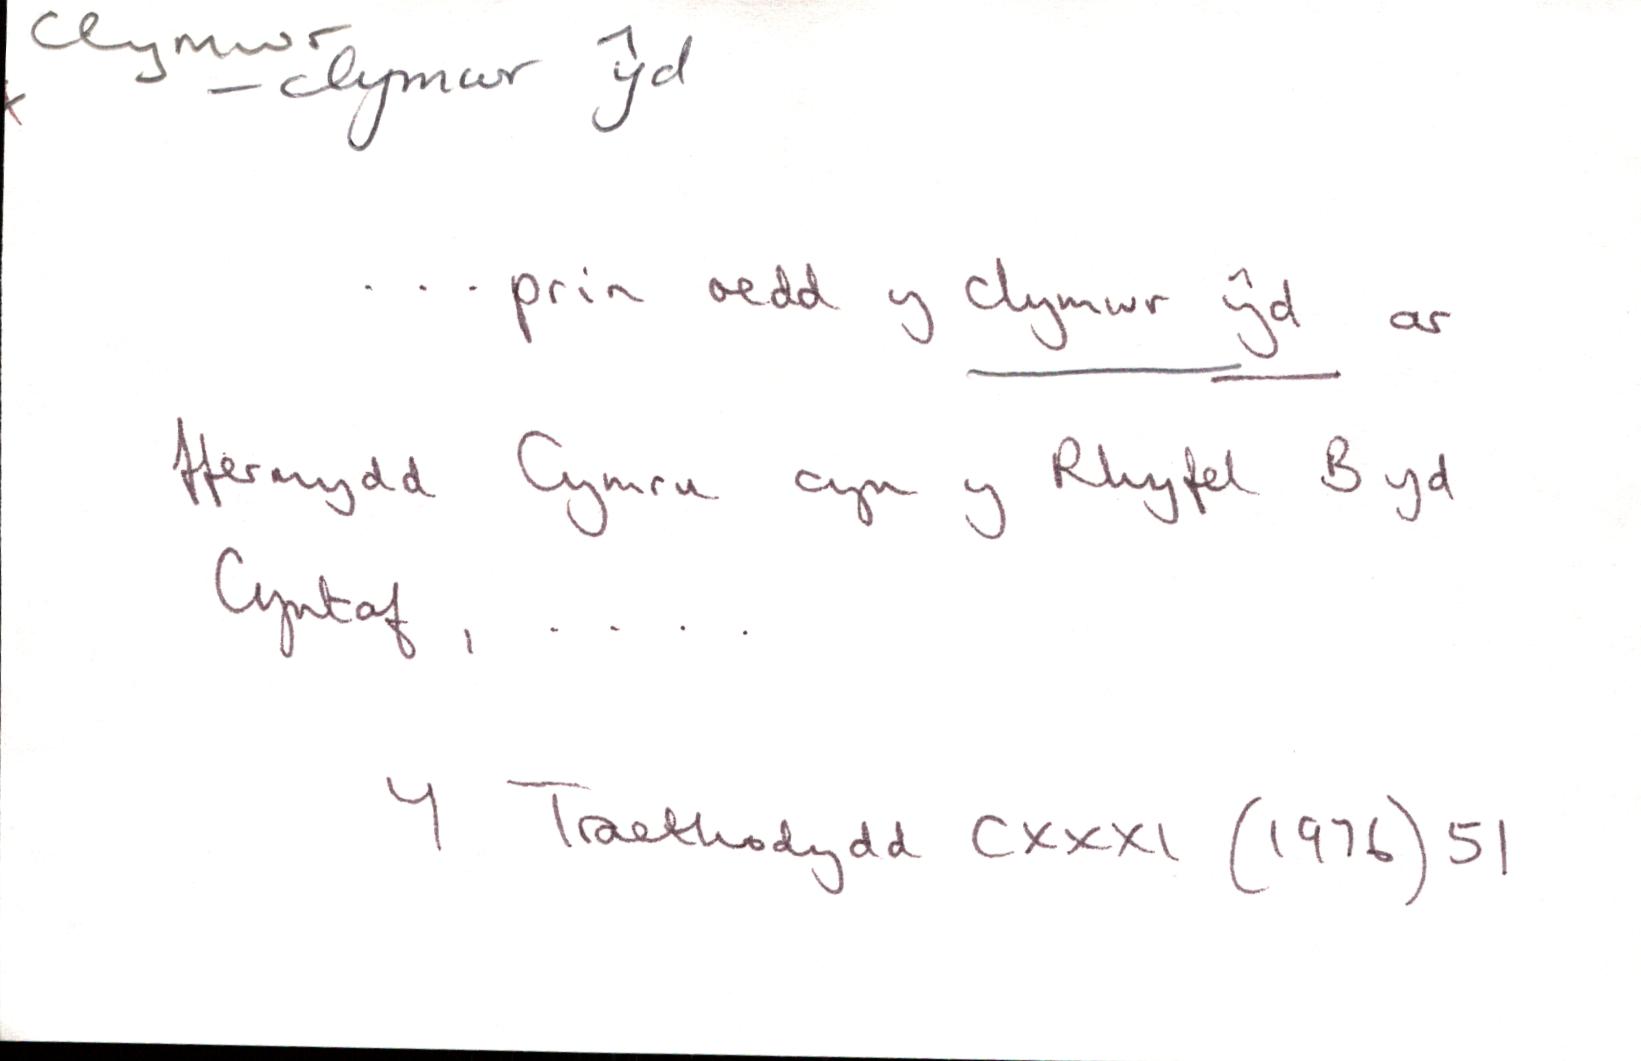 Clymwr
– clymwr ŷd
x
. . . . prin oedd y clymwr ŷd ar
ffermydd Cymru cyn y Rhyfel Byd
Cyntaf, . . . .
Y Traethodydd CXXXI (1976) 51